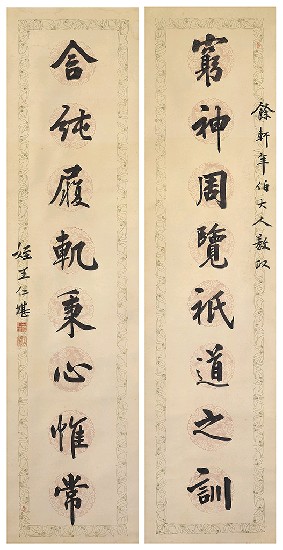 餘軒年伯大人教政
窮神周覽祗道之訓
含純履軌秉心惟常
姪王仁堪